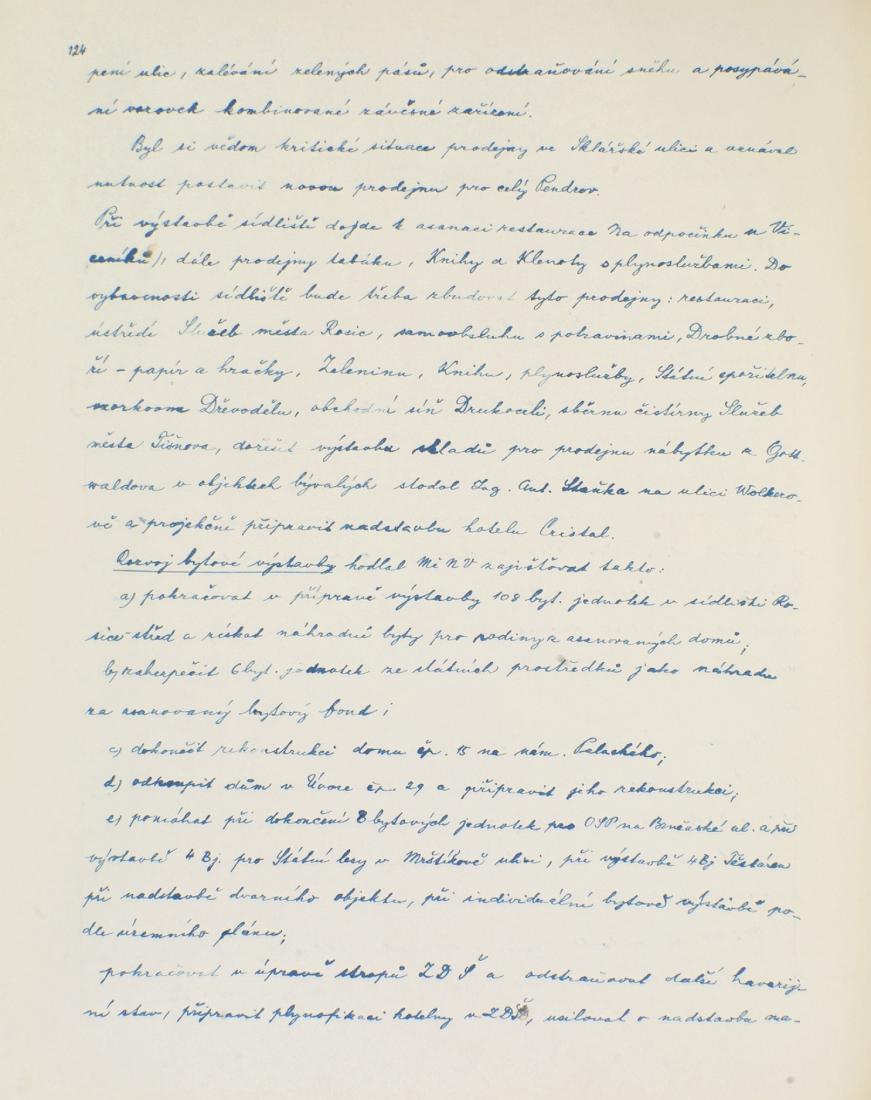 124
pení ulic, zalévání zelených pásů, pro odstraňování sněhu a posypává-
ní vozovek kombinované závěsné zařízení.
Byl si vědom kritické situace prodejny ve Sklářské ulici a uznával
nutnost postavit novou prodejnu pro celý Pendrov.
Při výstavbě sídliště dojde k asanaci restaurace Na odpočinku u Vi-
ceníků), dále prodejny tabáku, Knihy a Klenoty s plynoslužbami. Do
vybavenosti sídliště bude třeba zbudovat tyto prodejny: restauraci,
ústředí Služeb města Rosic, samoobsluhu s potravinami, Drobné zbo-
ží - papír a hračky, Zeleninu, Knihu, plynoslužby, Státní spořitelnu,
vzorkovnu Dřevodělu, obchodní síň Drukocelu, sběrnu čistírny Služeb
města Tišnova, dořešit výstavbu skladů pro prodejnu nábytku z Gott-
waldova v objektech bývalých stodol Ing. Ant. Staňka na ulici Wolkero-
vě a projekčně připravit nadstavbu hotelu Cristal.
Rozvoj bytové výstavby hodlal MěNV zajišťovat takto:
a) pokračovat v přípravě výstavby 108 byt. jednotek v sídlišti Ro-
sice-střed a získat náhradní byty pro rodiny z asanovaných domů;
b) zabezpečit 6 byt. jednotek ze státních prostředků jako náhradu
za asanovaný bytový fond;
c) dokončit rekonstrukci domu čp. 15 na nám. Palackého;
d) odkoupit dům v Úvoze čp. 29 a připravit jeho rekonstrukci;
e) pomáhat při dokončení 8 bytových jednotek pro OSP na Brněnské ul. a při
výstavbě 4 Bj. pro Státní lesy v Mrštíkově ulici, při výstavbě 4 Bj Těstáren
při nadstavbě dvorního objektu, při individuelní bytové výstavbě po-
dle územního plánu;
pokračovat v úpravě stropů ZDŠ a odstraňovat další havarij-
ní stav, připravit plynofikaci kotelny v ZDŠ, usilovat o nadstavbu na-